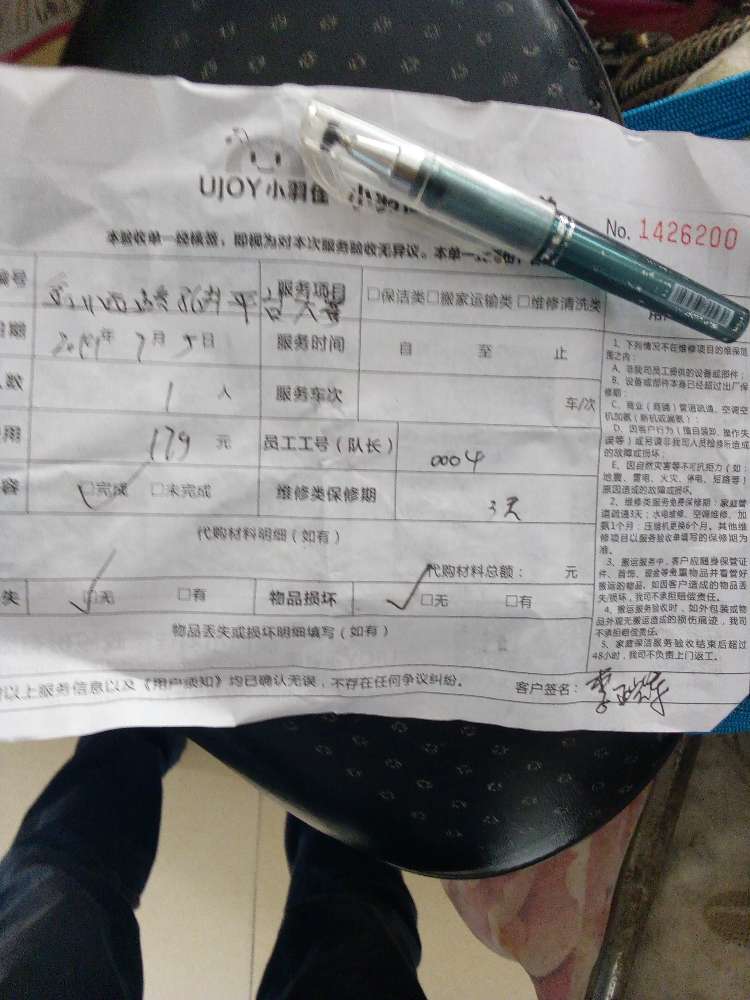 UJOY小羽佳 小羽
No. 1426200
本验收单一经核签，即视为对本次服务验收无异议。本单一
编号 服务项目 □保洁类□搬家运输类□维修清洗类
日期 年7月5日 服务时间 自 至 止
人数 1 人 服务车次 车/次
费用 179 元 员工工号（队长） 0004
内容 □完成 □未完成 维修类保修期 3天
代购材料明细（如有）
代购材料总额： 元
失 □无 □有 物品损坏 □无 □有
物品丢失或损坏明细填写（如有）
以上服务信息以及《用户须知》均已确认无误，不存在任何争议纠纷。 客户签名：
用
1、下列情况不在维修项目的维保范
围之内：
A、非我司员工提供的设备或部件；
B、设备或部件本身已经超过出厂保
修期；
C、商业（商铺）管道疏通、空调空
机加氨（新机或漏氨）；
D、因客户行为（擅自装卸、操作失
误等）或另请非我司人员检修所造成
的故障或损坏；
E、因自然灾害等不可抗拒力（如：
地震、雷电、火灾、停电、短路等）
原因造成的故障或损坏。
2、维修类服务免费保修期：家庭管
道疏通3天；水电维修、空调维修、加
氨1个月；压缩机更换6个月。其他维
修项目以服务验收单填写的保修期为
准。
3、搬运服务中，客户应随身保管证
件、首饰、现金等贵重物品并看管好
搬运的物品。如因客户造成的物品丢
失/损坏，我司不承担赔偿责任。
4、搬运服务验收时，如外包装或物
品外观无搬运造成的损伤痕迹，我司
不承担赔偿责任。
5、家庭保洁服务验收结束后超过
48小时，我司不负责上门返工。